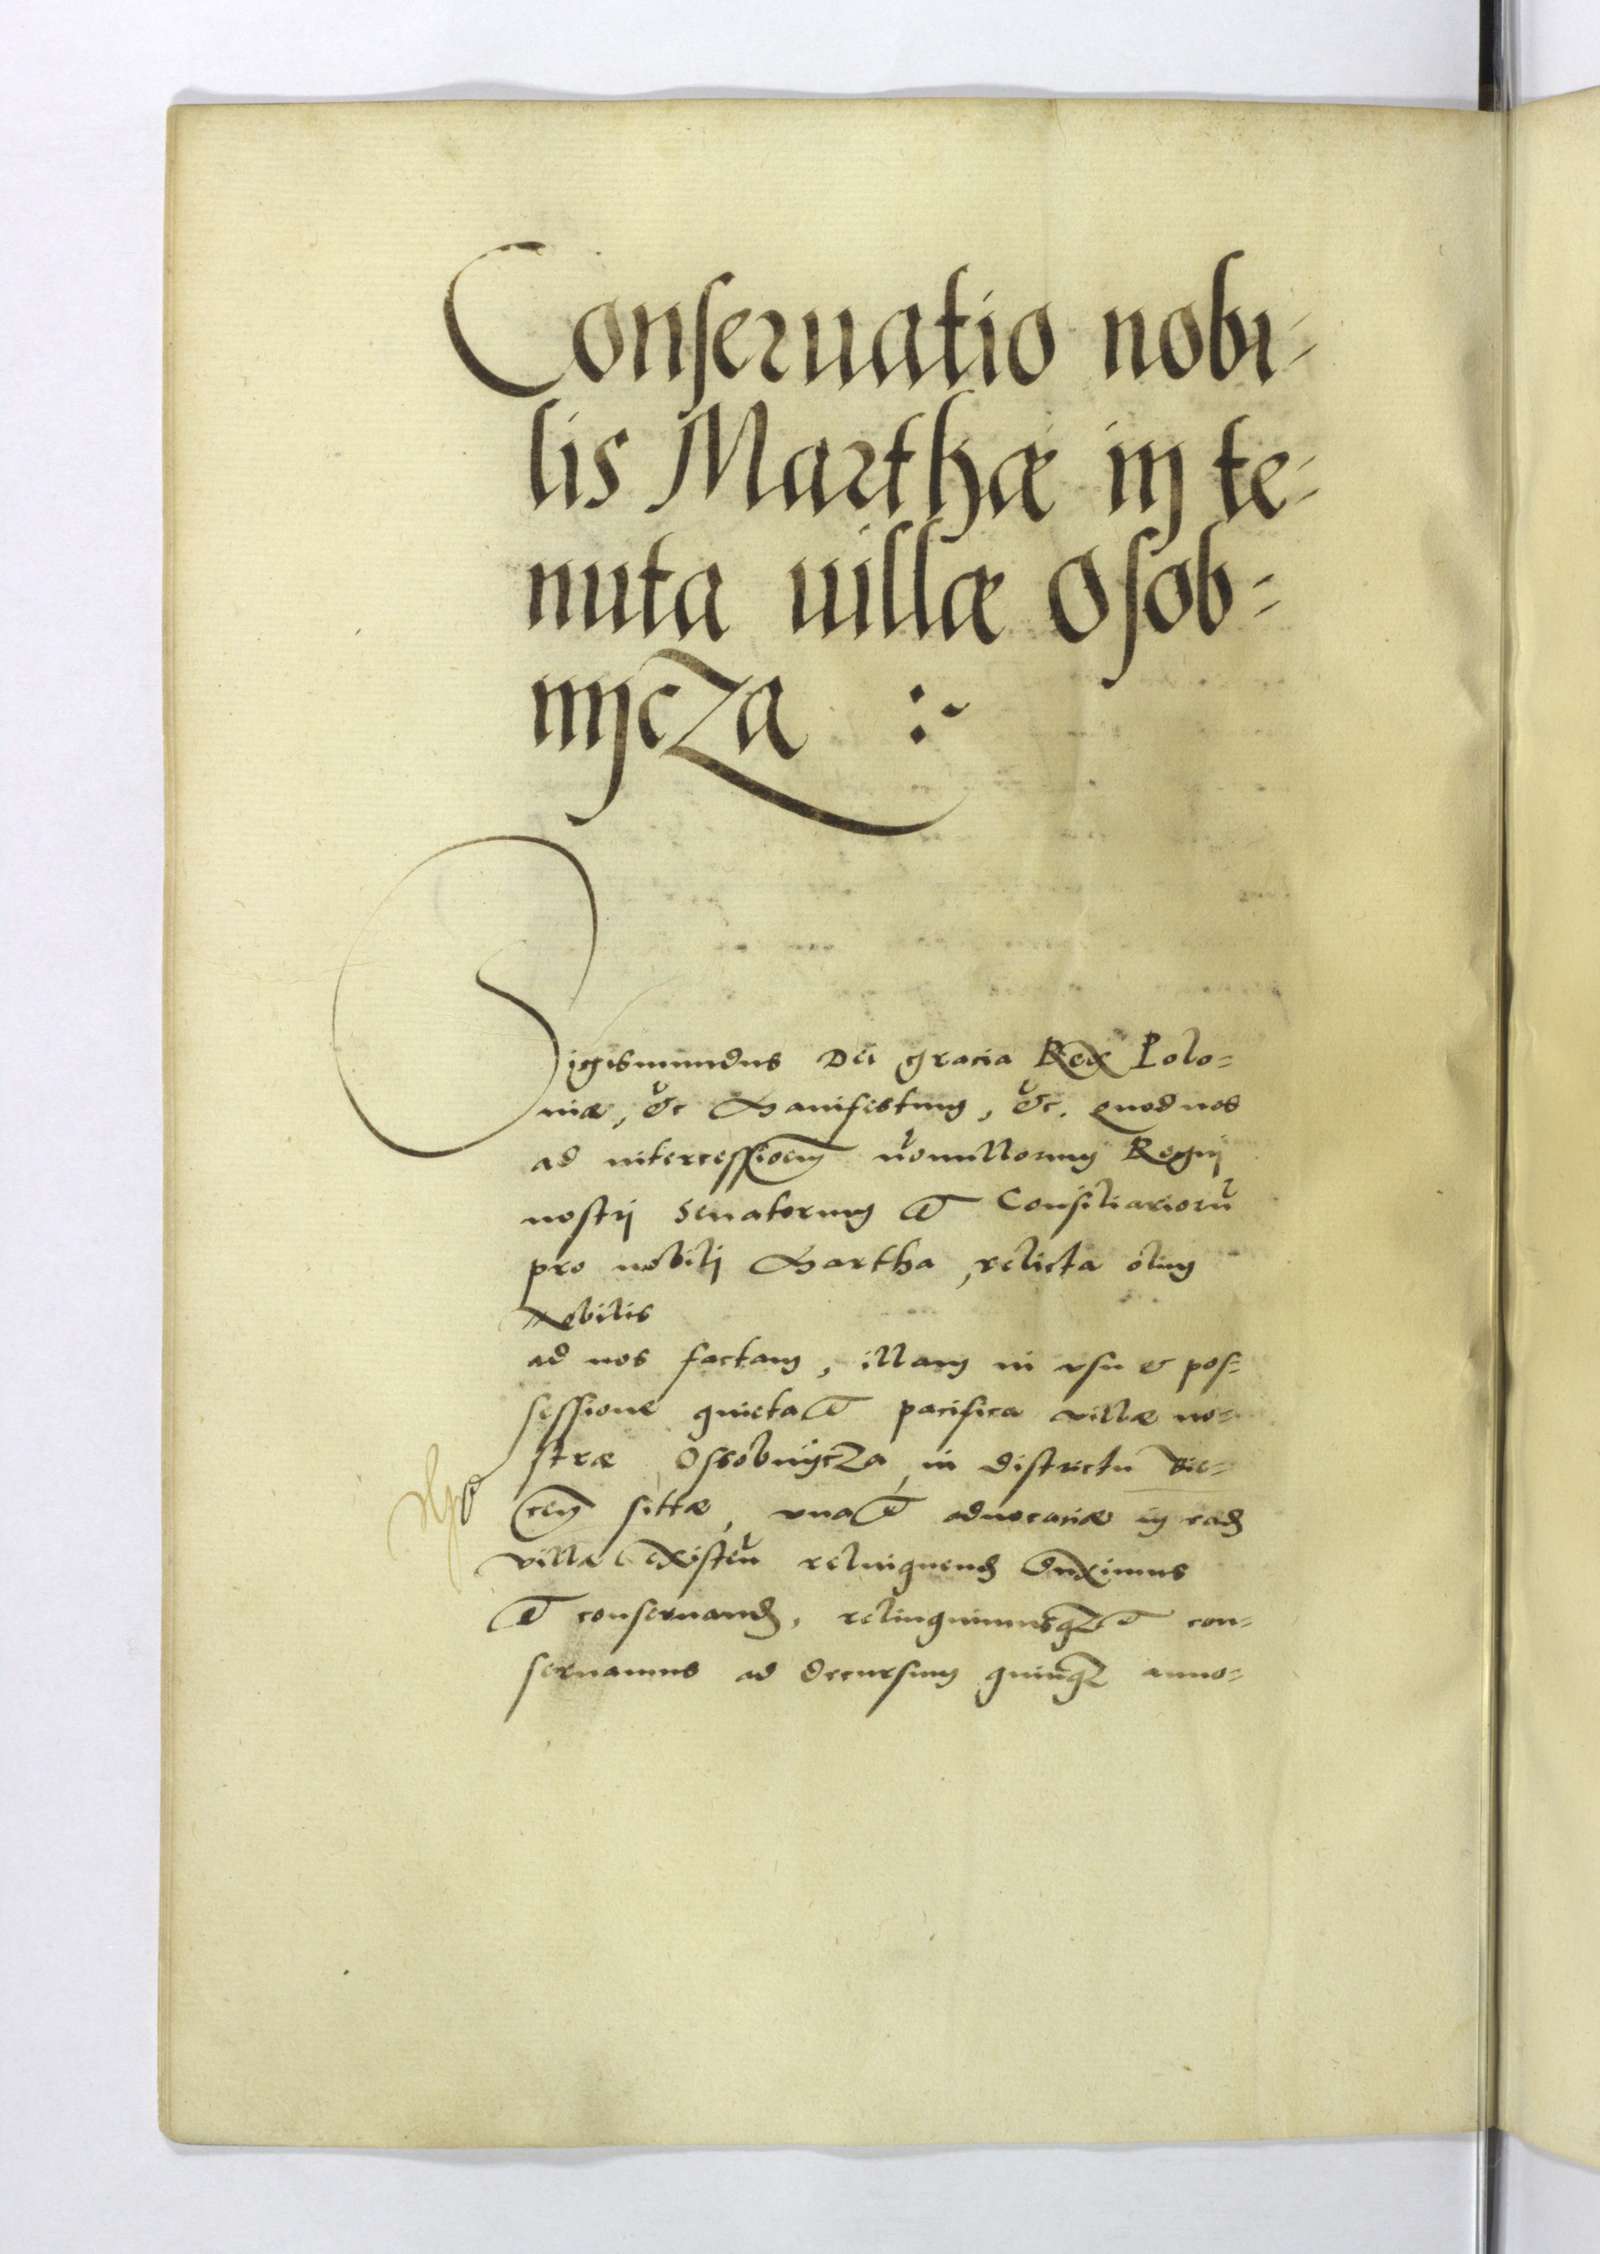 Conseruatio nobi-
lis Marthæ in te-
nuta uillæ Osob-
nijcza :~
Sigismundus Dei gracia Rex Polo=
niæ, &c Manifestum, &c. quod nos
ad intercessioem nonnullorum Regnj
nostrj Senatorum et Consiliariorũ
pro nobilj Martha, relicta olim
Nobilis
ad nos factam, illam in vsu & pos=
sessione quieta et pacifica villæ no=
stræ Ossobnijcza, in districtu Bie=
cem̃ sittæ, vna et aduocatiæ in ead
villa existeñ relinquend duximus
et conseruand, relinquimusqz et con=
seruamus ad decursum quinqz anno=